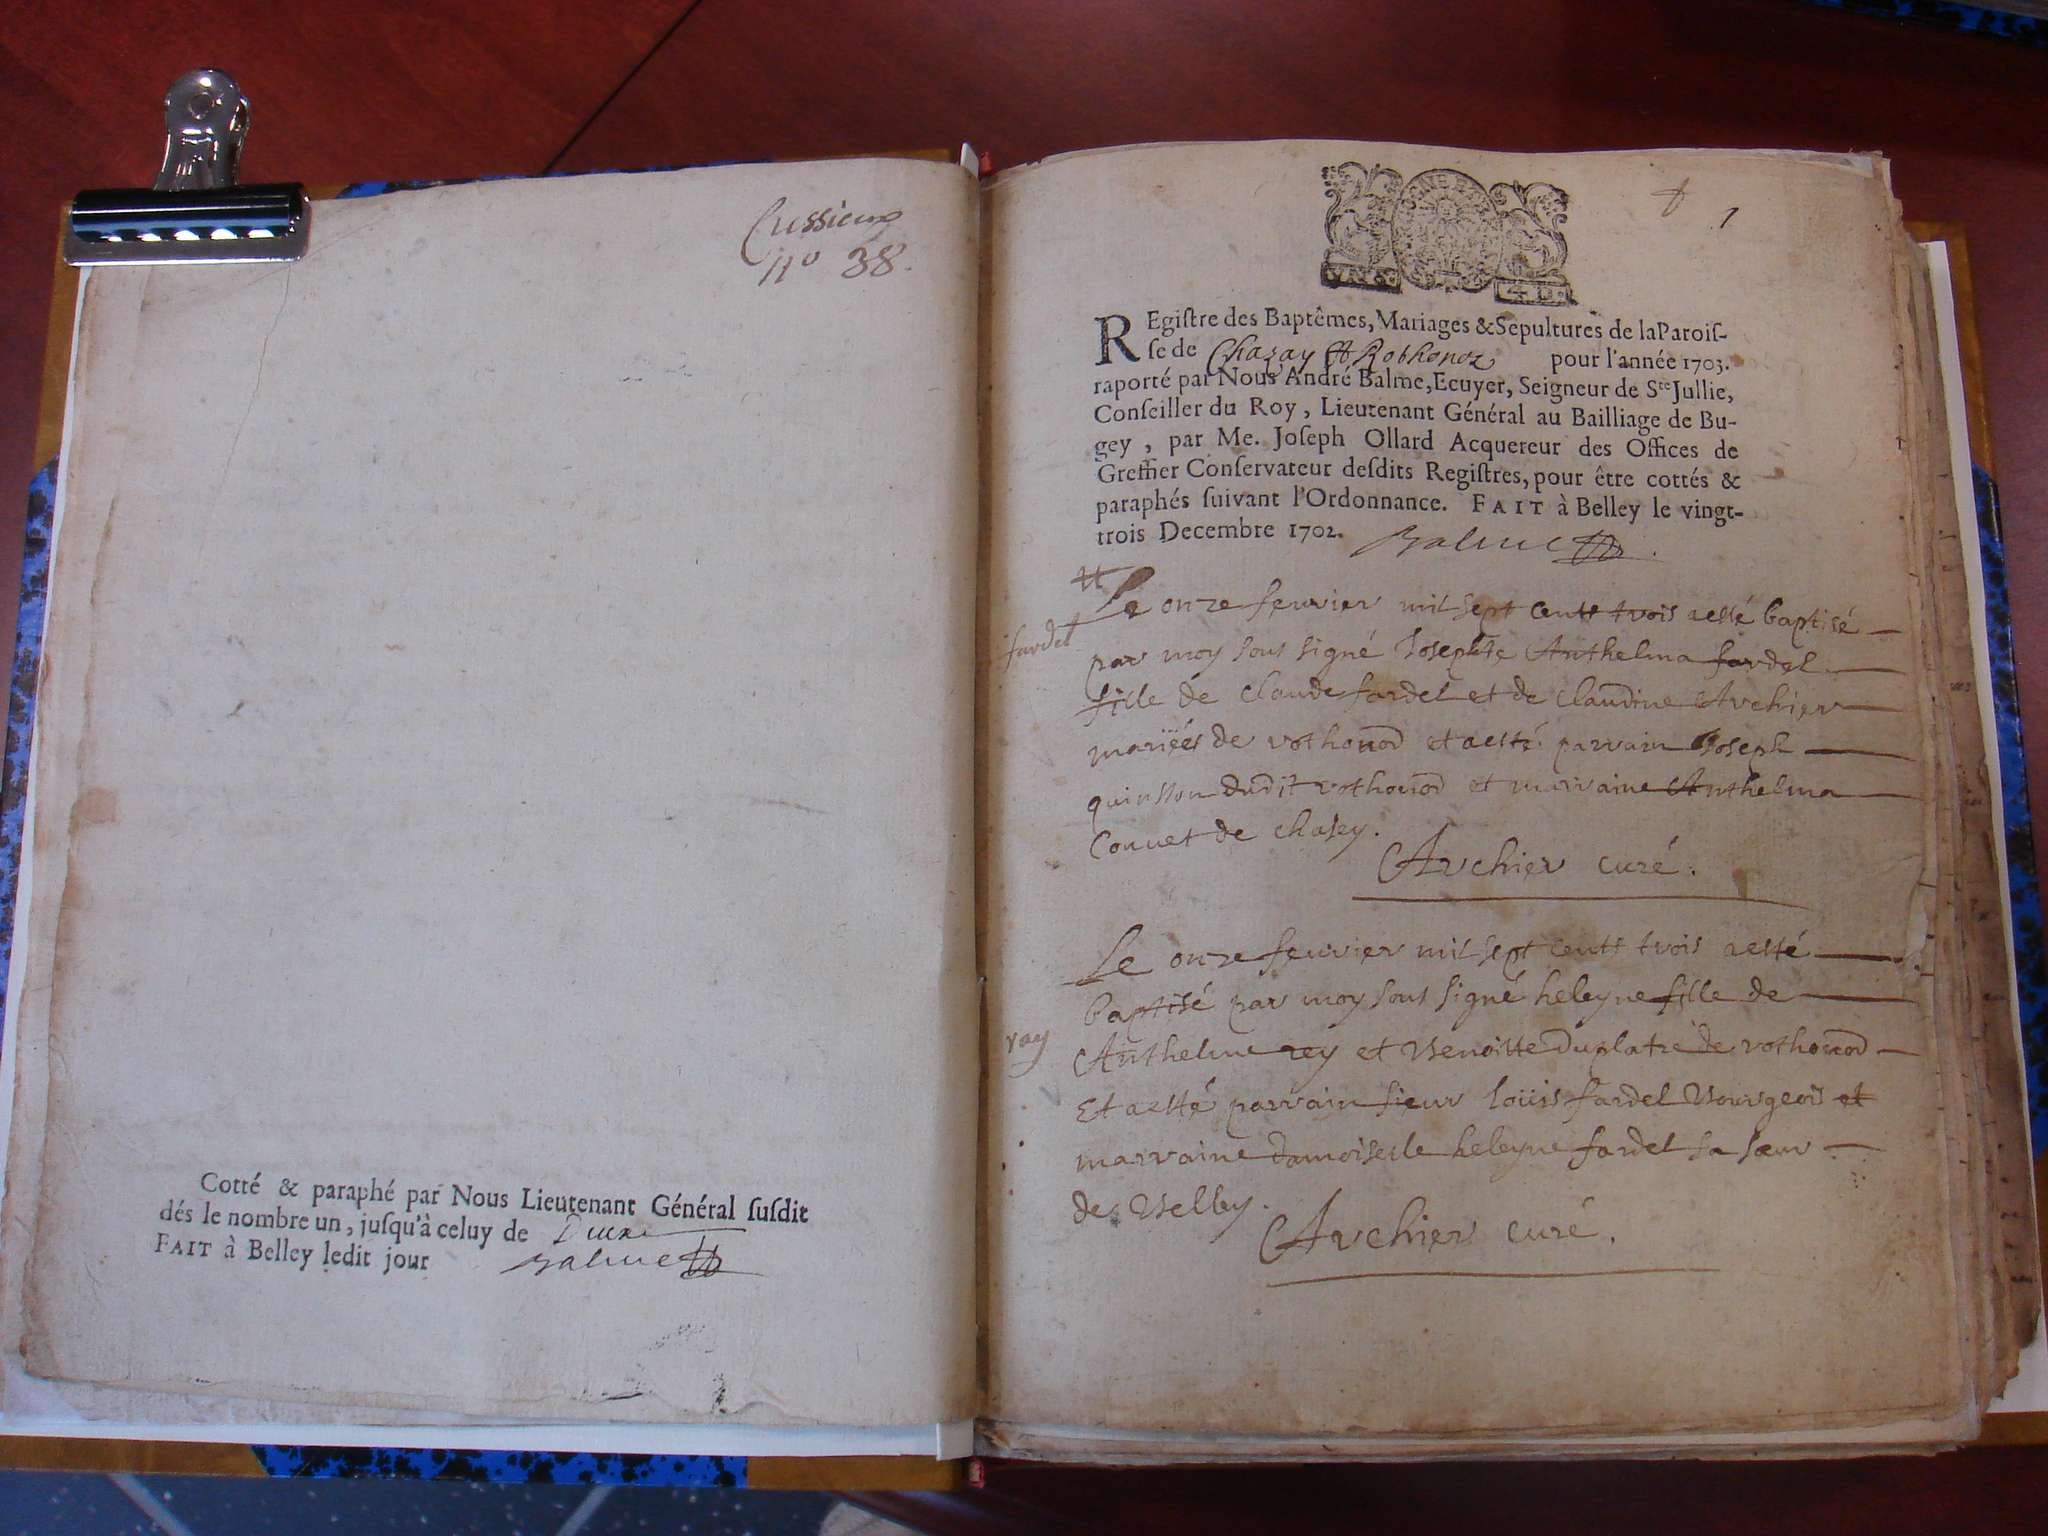 Cussieux
n° 38.
Cotté & paraphé par Nous Lieutenant Général susdit
dés le nombre un, jusqu'à celuy de Deux
FAIT à Belley ledit jour Balme
1
REgistre des Baptêmes, Mariages & Sepultures de la Parois-
se de Chazay & Rothonoz pour l'année 1703.
raporté par Nous André Balme, Ecuyer, Seigneur de Ste Jullie,
Conseiller du Roy, Lieutenant Général au Bailliage de Bu-
gey, par Me. Joseph Ollard Acquereur des Offices de
Greffier Conservateur desdits Registres, pour être cottés &
paraphés suivant l'Ordonnance. FAIT à Belley le vingt-
trois Decembre 1702. Balme
Le onze feurier mil sept cents trois aesté baptisé
fardel
par moy sous signé Josephte Anthelma fardel
fille de claude fardel et de claudine Archier
mariées de rothonod et aesté parrain Joseph
quinsson dudit rothonod et marraine Anthelma
Couuet de chasey.
Archier curé.
Le onze feurier mil sept cents trois aesté
baptisé par moy sous signé heleyne fille de
rey
Anthelme rey et Benoitte Duplatre de rothonod
Et aesté parrain sieur loüis fardel Bourgeois et
marraine damoiselle heleyne fardel sa sœur
de Belley.
Archier curé.